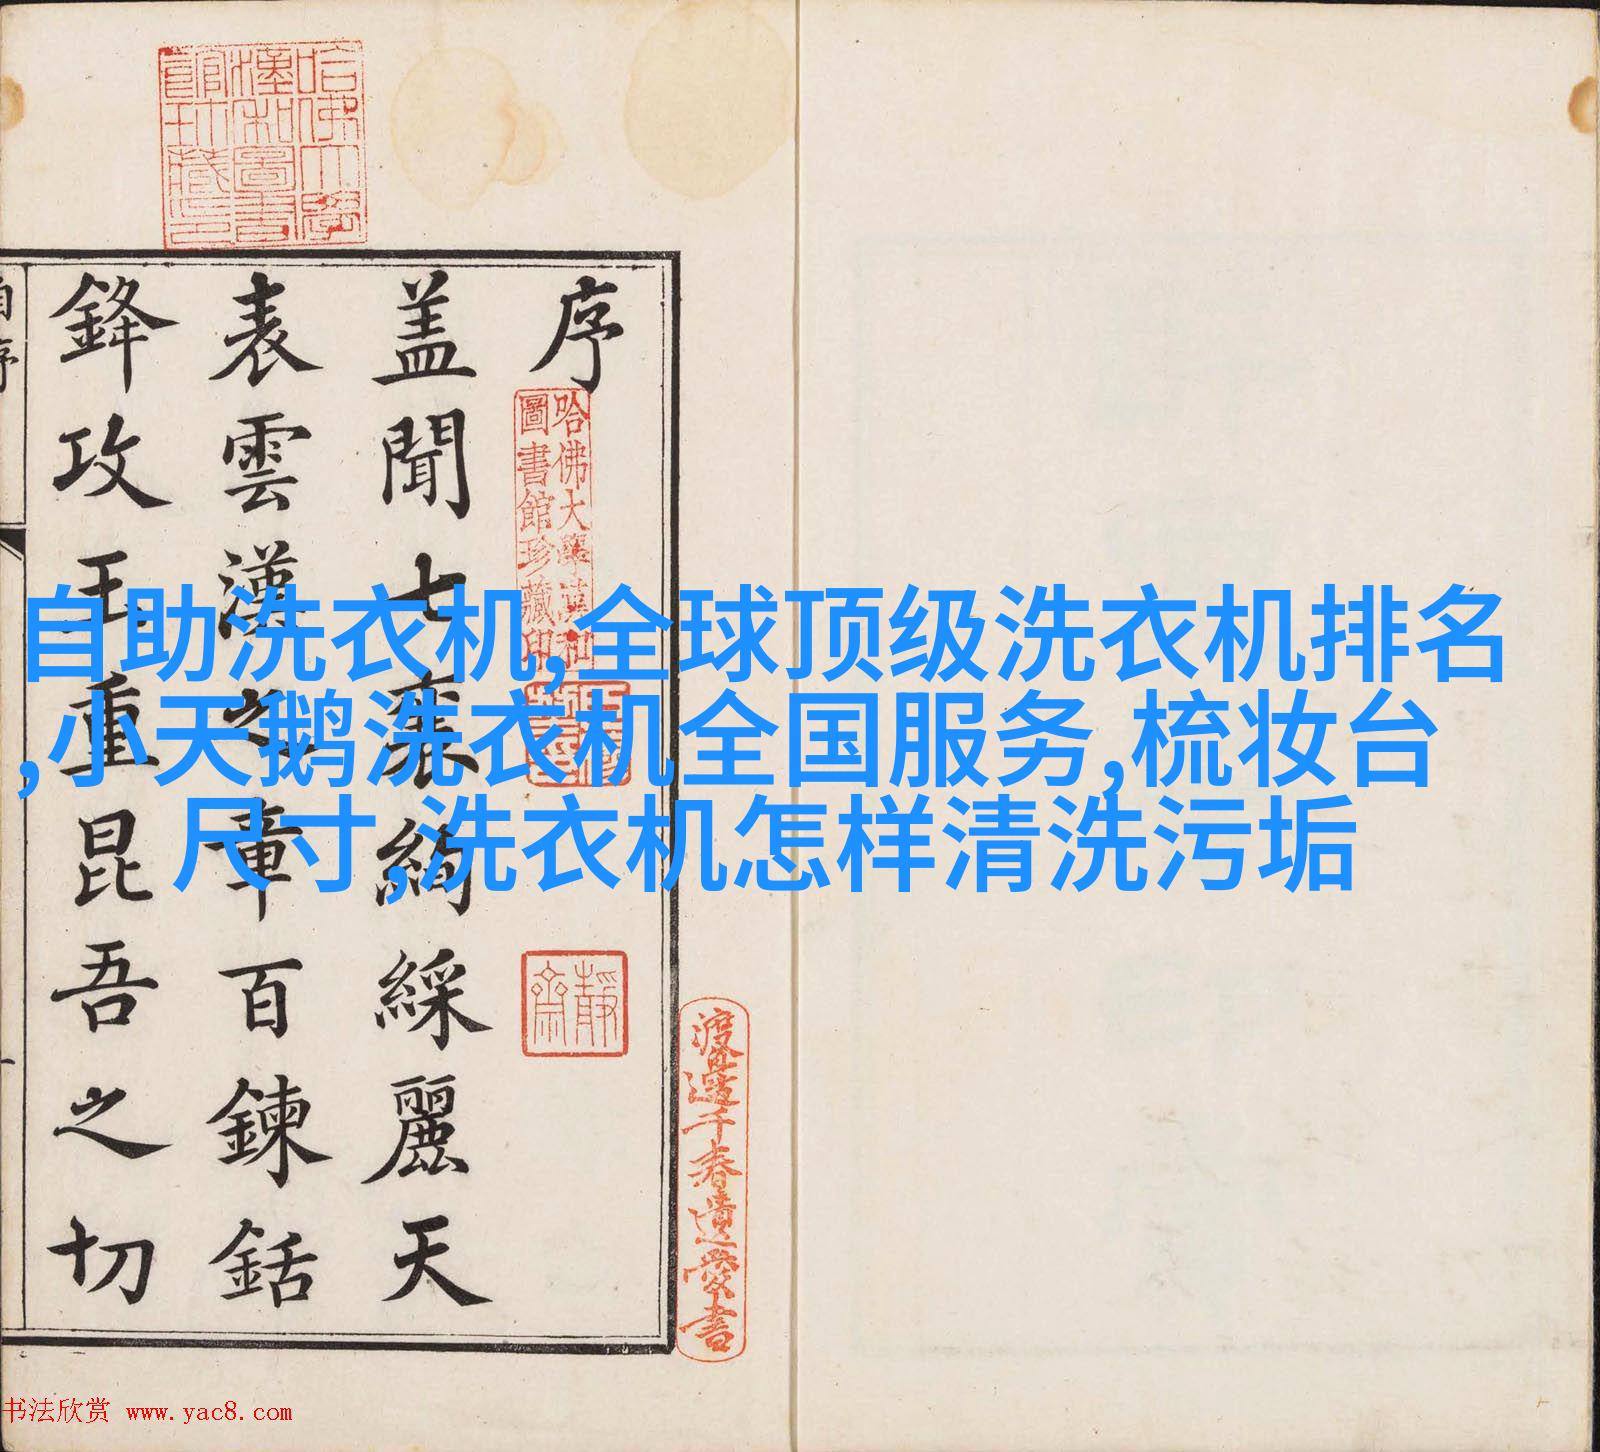 自助洗衣机,全球顶级洗衣机排名
,小天鹅洗衣机全国服务,梳妆台
尺寸,洗衣机怎样清洗污垢
哈佛大學
漢和圖書
館珍藏印
序
哈佛大學漢和
圖書館珍藏印
靜齋
渡邉千春遺愛書
盖聞七襄絢綵麗天
表雲漢之章百鍊銛
鋒攻玉重昆吾之切
自序
书法欣赏 www.yac8.com